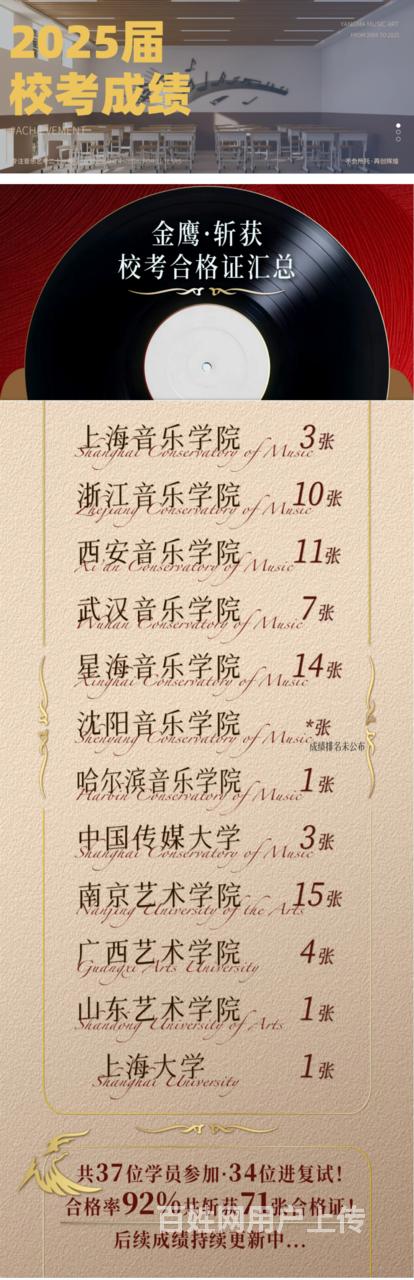 2025届
校考成绩
YANGMA MUSIC ART
FROM 2009 TO 2025
#ACHIEVEMENT
不负所托·再创辉煌
金鹰·斩获
校考合格证汇总
上海音乐学院 3张
Shanghai Conservatory of Music
浙江音乐学院 10张
Zhejiang Conservatory of Music
西安音乐学院 11张
Xi'an Conservatory of Music
武汉音乐学院 7张
Wuhan Conservatory of Music
星海音乐学院 14张
Xinghai Conservatory of Music
沈阳音乐学院 *张
Shenyang Conservatory of Music
成绩排名未公布
哈尔滨音乐学院 1张
Harbin Conservatory of Music
中国传媒大学 3张
Shanghai Conservatory of Music
南京艺术学院 15张
Nanjing University of the Arts
广西艺术学院 4张
Guangxi Arts University
山东艺术学院 1张
Shandong University of Arts
上海大学 1张
Shanghai University
共37位学员参加·34位进复试！
合格率92%共斩获71张合格证！
百姓网用户上传
后续成绩持续更新中...